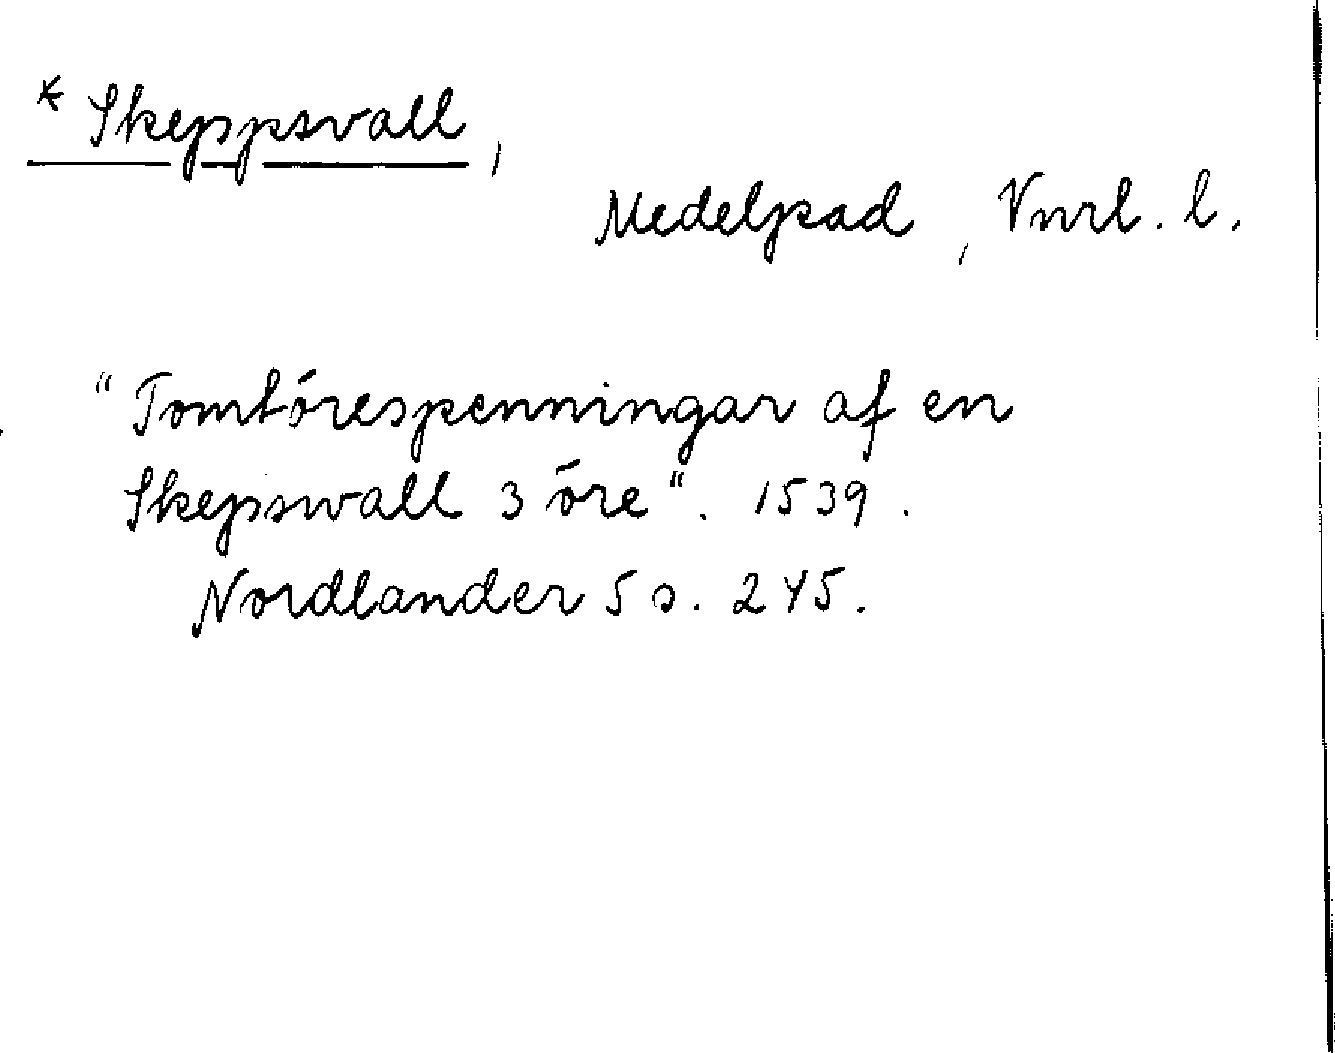 * Skeppsvall,
Medelpad, Vnrl. l.
"Tomtörespenningar af en
Skepswall 3 öre". 1539.
Nordlander 5 s. 245.